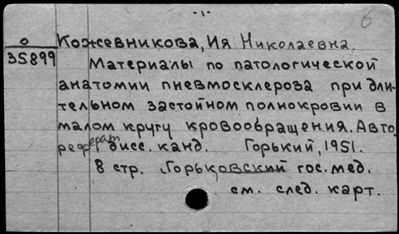 -1-
6
О
35899
Кожевникова, Ия Николаевна.
Материалы по патологической
анатомии пневмосклероза при дли-
тельном застойном полнокровии в
малом кругу кровообращения. Авто-
реферат дисс. канд. Горький, 1951.
8 стр. Горьковский гос. мед.
см. след. карт.